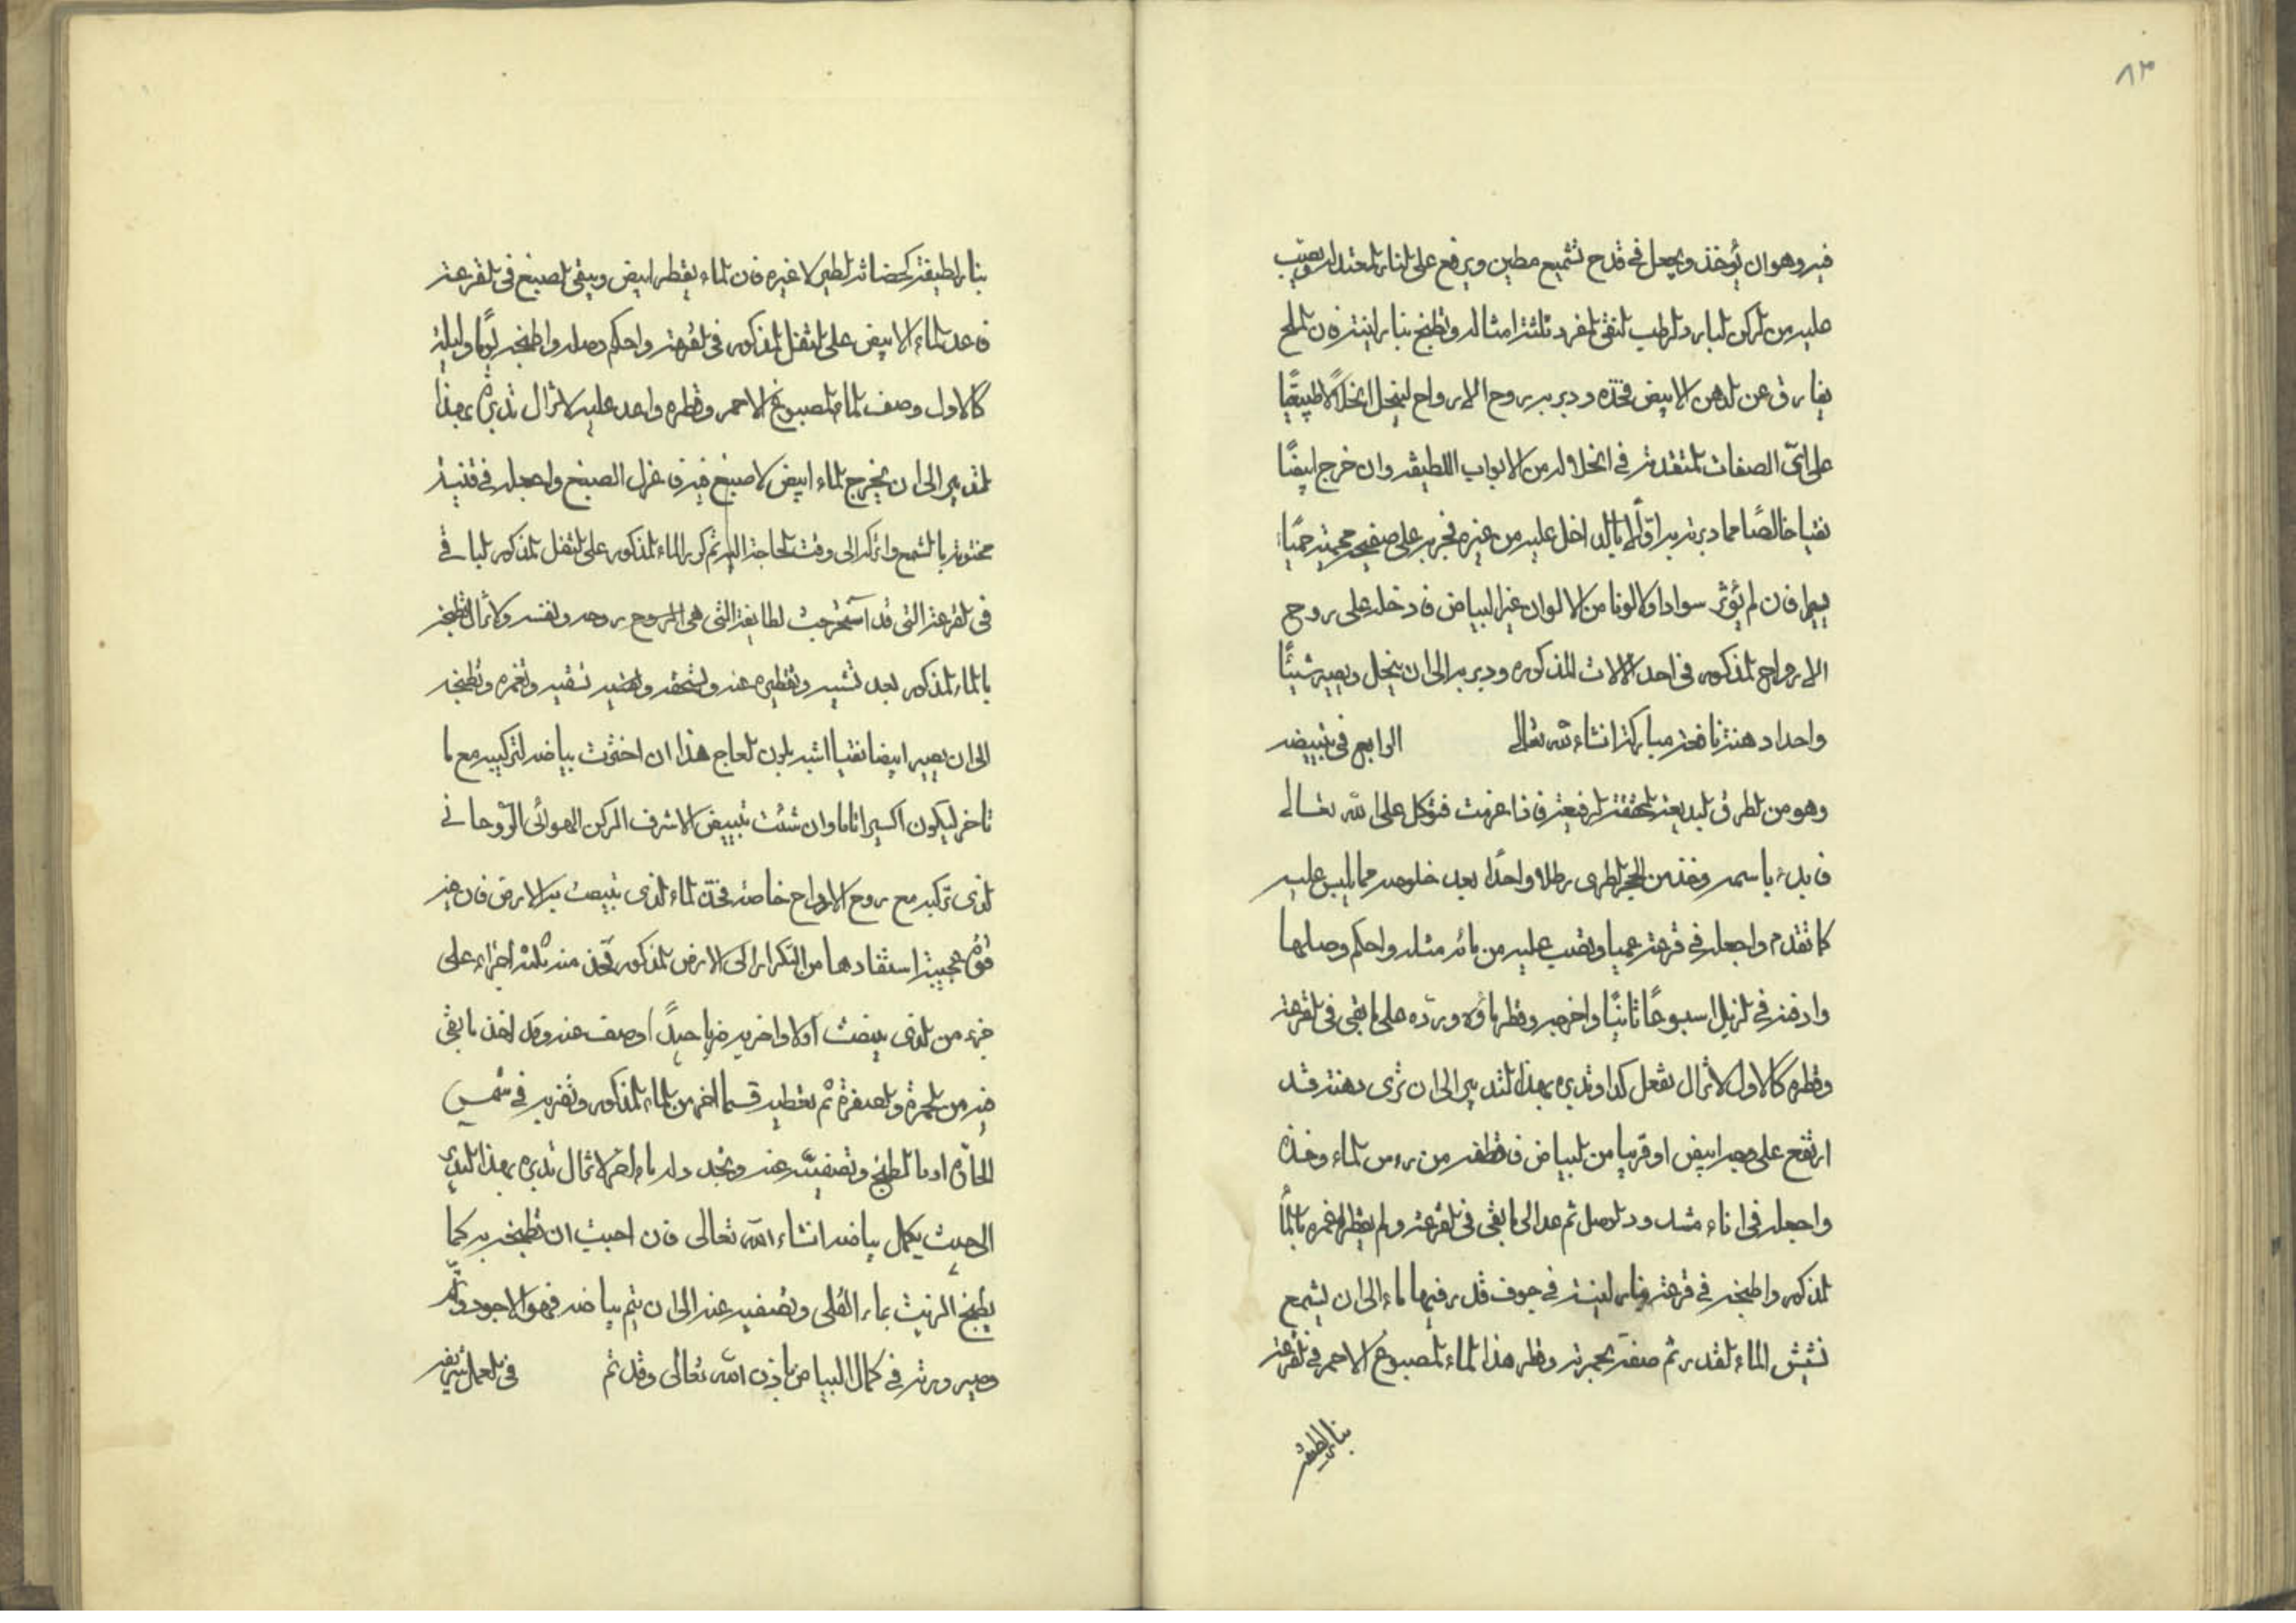 ٨٣
فيه وهو ان يؤخذ ويجعل في قدح تشميع مطين ويرفع على النار المعتدلة ويصب
عليه من الركن البارد الرطب النقي المفرد ثلثة امثاله وتطبخ بنار لينة فان الملح
يفارق عن الدهن الابيض فخذه ودبر به روح الارواح لينحل انحلالا طبيعيًا
على اى الصفات المتقدمة في انحلاله من الابواب اللطيفه وان خرج ابيضًا
نقيا خالصًا مما دبرته به اولا او ادخل عليه من غيره فجربه على صفيحه محمية حميًا
فان لم يؤثر سوادا ولا لونا من الالوان غير البياض فادخله على روح
الارواح المذكور في احد الالات المذكوره ودبر به الى ان ينحل ويصير شيئًا
واحدا دهنة نافعة مباركة انشاء الله تعالى الرابع في تبييضه
وهو من الطرق البديعة المحققة الرفيعة فاذا عزمت فتوكل على الله تعالى
فابدء باسمه وخذ من الحجر الطرى رطلا واحدًا بعد خلوصه مما لبس عليه
كما تقدم واجعله في قرعة عميا وتصب عليه من مائه مثله واحكم وصلها
وادفنه في الزبل اسبوعًا ثانيًا واخرجه وقطر ماؤه ورده على ما بقى في القرعة
وقطره كالاول لاتزال تفعل كذا وتدبره بهذا التدبير الى ان ترى دهنة قد
ارتفع على وجه ابيض او قريبا من البياض فاقطفه من رءس الماء وخذه
واجعله في اناء مسدود الوصل ثم عد الى ما بقى في القرعة ولم يقطر اغمره بالماء
المذكور واطبخه في قرعة بنار لينة في جوف قدر فيها ماء الى ان يسمع
نشيش الماء القدر ثم صفه بحمرته وقطر هذا الماء المصبوغ الاحمر في القرعة
بنار لطيفة
بنار لطيفة كحضانة الطير لا غيره فان الماء يقطر ابيض ويبقى الصبغ في القرعة
فاعد الماء الابيض على الثفل المذكور في القرعة واحكم وصله واطبخه يومًا وليلة
كالاول وصف الماء المصبوغ الاحمر وقطره واعد عليه لاتزال تدبره بهذا
التدبير الى ان يخرج الماء ابيض لا صبغ فيه فاعزل الصبغ واجعله في قنينة
مختومة بالشمع واتركه الى وقت الحاجة اليه ثم كرر الماء المذكور على الثفل المذكور الباقي
في القرعة التي قد استخرجت لطايفة التي هي الروح روحه ونفسه ولاتزال تطبخه
بالماء المذكور بعد تشبيبه وتقطيره عنه وتسحقه وتهبيه تسقيه وتغمره وتطبخه
الى ان يصير ابيضا نقيا اشبه بلون العاج هذا ان اخترت بياضه لتركيبه مع ما
تاخر ليكون اكسيرا تاما وان شئت تبييض الاشرف الركن الهوائى الروحاني
الذى تركبه مع روح الارواح خاصة فخذ الماء الذى تبيضت به الارض فان فيه
قوة عجيبة استفادها من التكرار الى الارض المذكور فخذ منه ثلثة اجزاء على
جزء من الذى بيضت اولا واضربه ضربا جيدًا وصف عنه وقد اخذ ما بقى
فيه من الحمرة والصفرة ثم تعطيه قسما اخر من الماء المذكور وتضربه في شمس
الحارة او بالطبخ وتصفيته عنه وتجدد له ماء اخر لاتزال تدبره بهذا التدبير
الى حيث يكمل بياضه انشاء الله تعالى فان احببت ان تطبخه به كما
يطبخ الزيت بماء القلى وتصفيه عنه الى ان يتم بياضه فهو الاجود
وصيرورته في كمال البياض باذن الله تعالى وقد تم في العمل شريفه